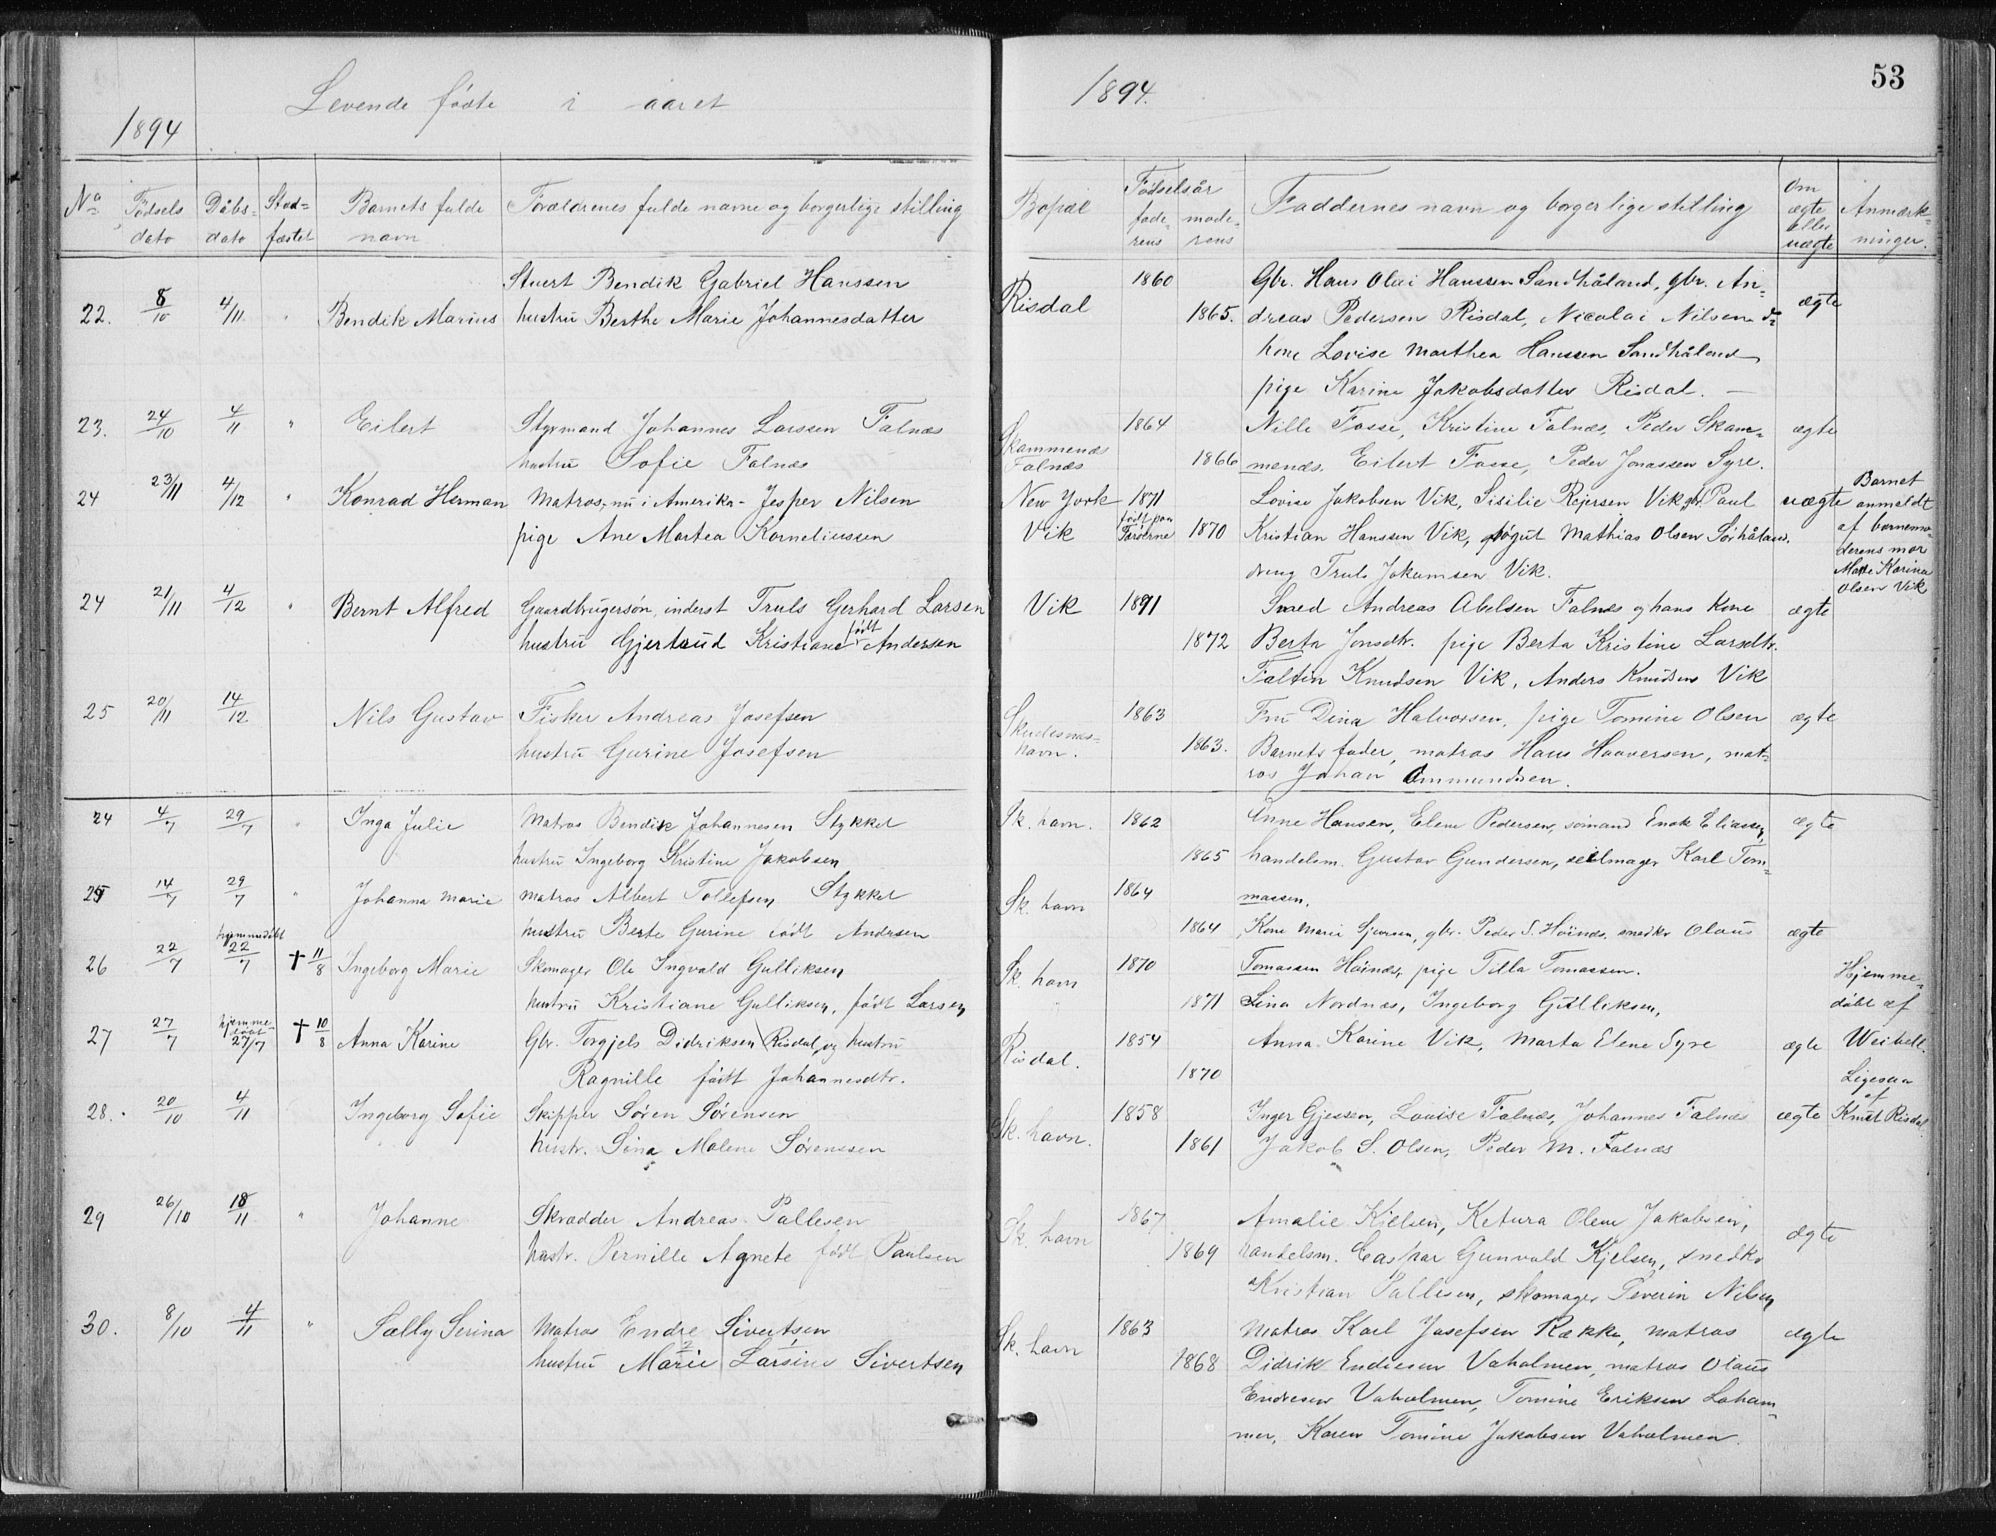 1894
Levende fødte i aaret
1894.
53
No
Fødsels dato
Dåbs- dato
Stad- fæstet
Barnets fulde navn
Forældrenes fulde navne og borgerlige stilling
Bopæl
Fødselsår
fade- rens
mode- rens
Faddernes navn og borgerlige stilling
Om ægte eller uægte
Anmærk- ninger.
Stuert Bendik Gabriel Hanssen
22. 8/10 4/11 " Bendik Marius hustru Berthe Marie Johannesdatter
Risdal 1860 Gbr. Hans Olai Hanssen Sandhåland, gbr. An-
1865. dreas Pedersen Risdal, Nicolai Nilsen ægte
kone Lovise Marthea Hanssen Sandhåland
pige Karine Jakobsdatter Risdal. —
23. 24/10 4/11 " Eilert Styrmand Johannes Larssen Falnæs
hustru Sofie Falnæs
Skammenæs Falnæs 1864 Nille Fosse, Kristine Falnæs, Peder Skam- ægte
1866 menæs. Eilert Fosse, Peder Jonassen Syre.
24 23/11 4/12 " Konrad Herman Matros, nu i Amerika - Jesper Nilsen
pige Ane Martea Korneliussen
New York 1871 Lovise Jakobsen Vik, Sisilie Rejersen Vik, gbr. Paul uægte
Vik født paa Færøerne 1870 Kristian Hanssen Vik, Mathias Olsen Sørhåland.
dreng Truls Jokumsen Vik.
Barnet
anmeldt
af barnemo-
derens mor
Karina
Olsen Vik
24 21/11 4/12 " Bernt Alfred Gaardbrugersøn, inderst Truls Gerhard Larsen
hustru Gjertrud Kristiane født Andersen
Vik 1891 Smed Andreas Abelsen Falnæs og hans kone ægte
1872 Berta Jonsdtr. pige Berta Kristine Larsdtr.
Faltin Knudsen Vik, Anders Knudsen Vik
25 20/11 14/12 Nils Gustav Fisker Andreas Josefsen
hustru Gurine Josefsen
Skudesnes- havn. 1863 Fru Dina Halvorsen, pige Tomine Olsen ægte
1863. Barnets fader, matros Hans Haaversen, mat-
ros Johan Ommundsen.
24 4/7 29/7 " Inga Julie Matros Bendik Johannesen Stykket
hustru Ingeborg Kristine Jakobsen
Sk. havn. 1862 Anne Hansen, Elene Pedersen, sømand Enok Eliassen, ægte
1865 handelsm. Gustav Gundersen, seilmager Karl Tom-
massen.
25 14/7 29/7 " Johanna Marie Matros Albert Tollefsen Stykket
hustru Berte Gurine født Andrsen
Sk. havn 1864
1864 Kone Marie Sjursen, gbr. Peder S. Høinæs, snedker Olaus ægte
Tomassen Høinæs, pige Tilla Tomassen.
26 22/7 hjemmedøbt 22/7 † 11/8 Ingeborg Marie Skomager Ole Ingvald Gulliksen
hustru Kristiane Gulliksen, født Larsen
Sk. havn 1870
1871 Lina Nordnæs, Ingeborg Gulliksen,
Hjemme-
døbt af
Weibell.
27 27/7 hjemme- døbt 27/7 † 10/8 Anna Karine Gbr. Torgjels Didriksen Risdal, og hustru
Ragnille født Johannesdtr.
Risdal. 1854 Anna Karine Vik, Marta Elene Syre ægte
1870
Ligesaa
af
Knut Risdal.
28. 20/10 4/11 Ingeborg Sofie Skipper Søren Sørensen
hustr. Sina Malene Sørenssen
Sk. havn. 1858 Inger Gjessen, Lovise Falnæs, Johannes Falnæs ægte
1861 Jakob S. Olsen, Peder M. Falnæs
29 26/10 18/11 " Johanne Skrædder Andreas Pallesen
hustr. Pernille Agnete født Paulsen
Sk. havn 1867 Amalie Kjelsen, Ketura Olene Jakobsen,
1869 handelsm. Caspar Gunvald Kjelsen, snedker ægte
Kristian Pallesen, skomager Severin Nilsen
30. 8/10 4/11 " Sælly Serina Matros Endre Sivertsen
hustru Marie Larsine Sivertsen
Sk. havn 1863 Matros Karl Josefsen Række, matros ægte
1868 Didrik Endresen Vaholmen, matros Olaus
Endresen Vaholmen, Tomine Eriksen Laham-
mer, Karen Tomine Jakobsen Vaholmen.